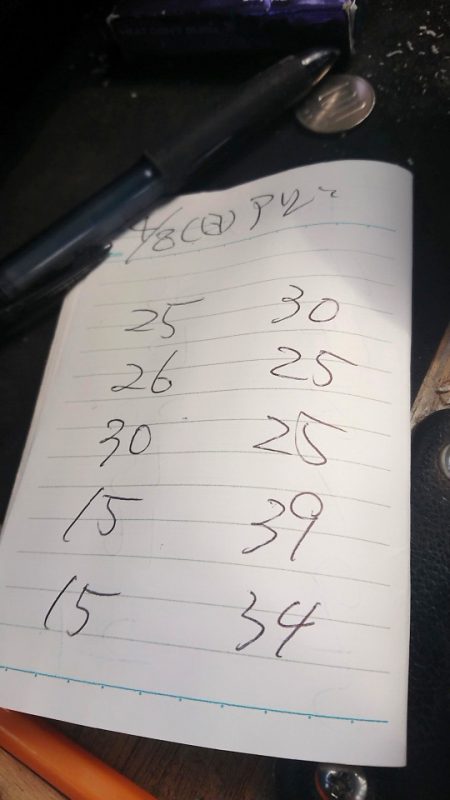 4/8(日) PM〜
25 30
26 25
30 25
15 39
15 34